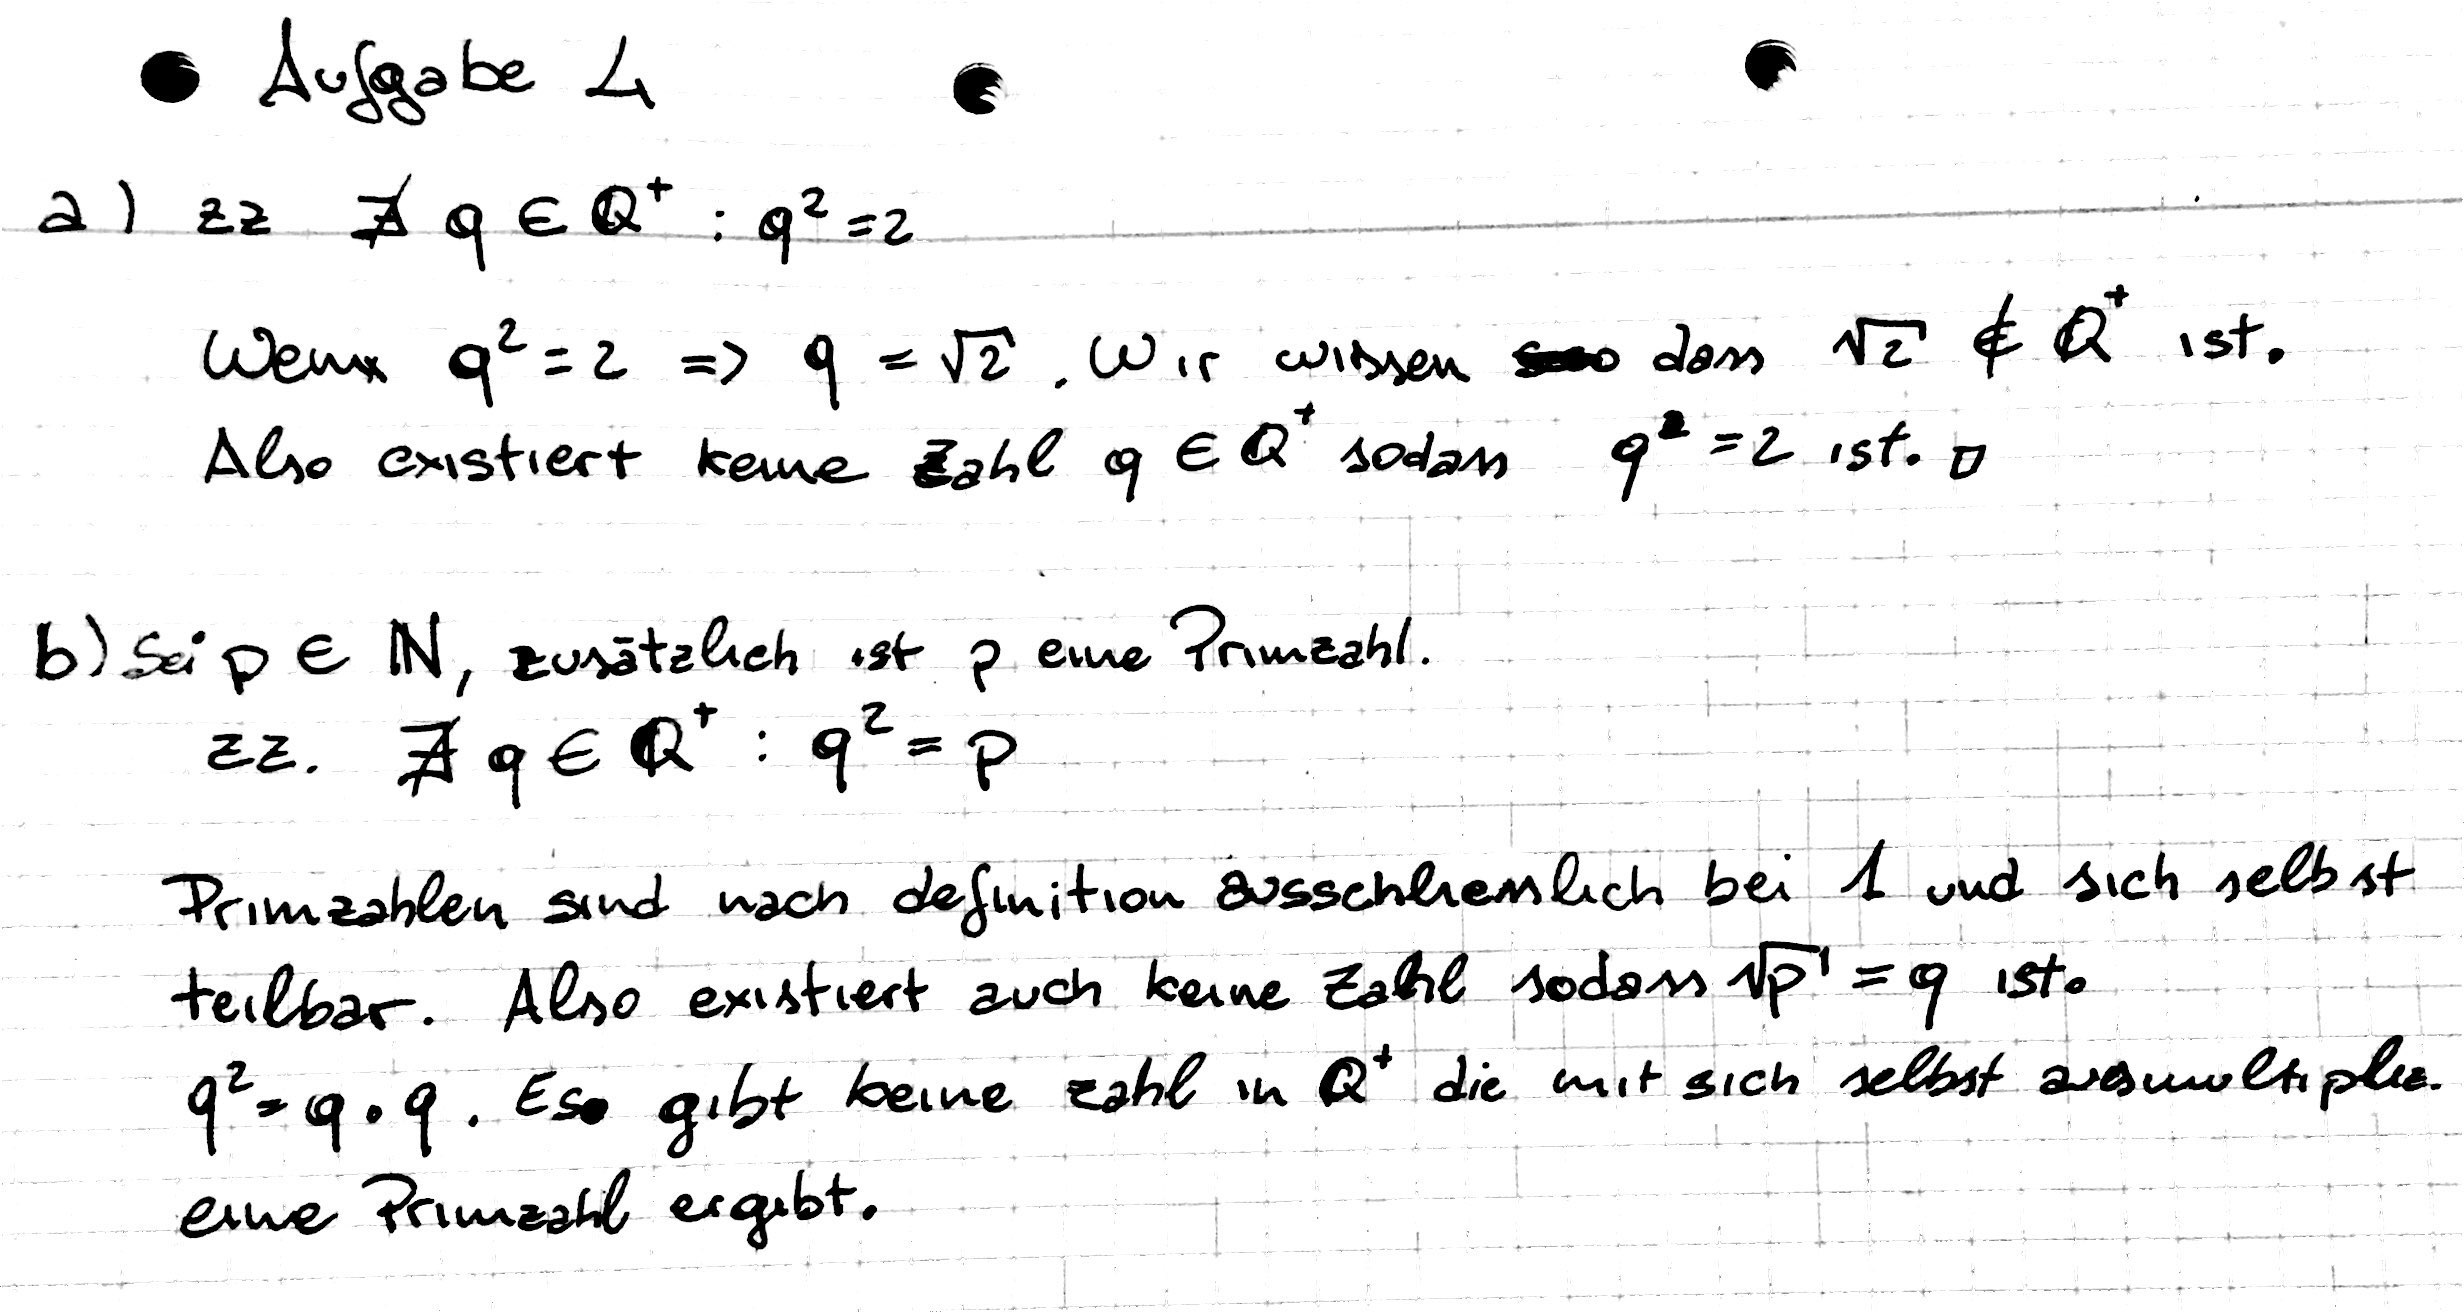 Aufgabe 4
a) zz ∄ q ∈ ℚ⁺ : q² = 2
Wenn q² = 2 => q = √2. Wir wissen dass √2 ∉ ℚ⁺ ist.
Also existiert keine Zahl q ∈ ℚ⁺ sodass q² = 2 ist. □
b) Sei p ∈ ℕ, zusätzlich ist p eine Primzahl.
zz. ∄ q ∈ ℚ⁺ : q² = p
Primzahlen sind nach definition ausschliesslich bei 1 und sich selbst
teilbar. Also existiert auch keine Zahl sodass √p = q ist.
q² = q · q. Es gibt keine zahl in ℚ⁺ die mit sich selbst ausmultipliz.
eine Primzahl ergibt.